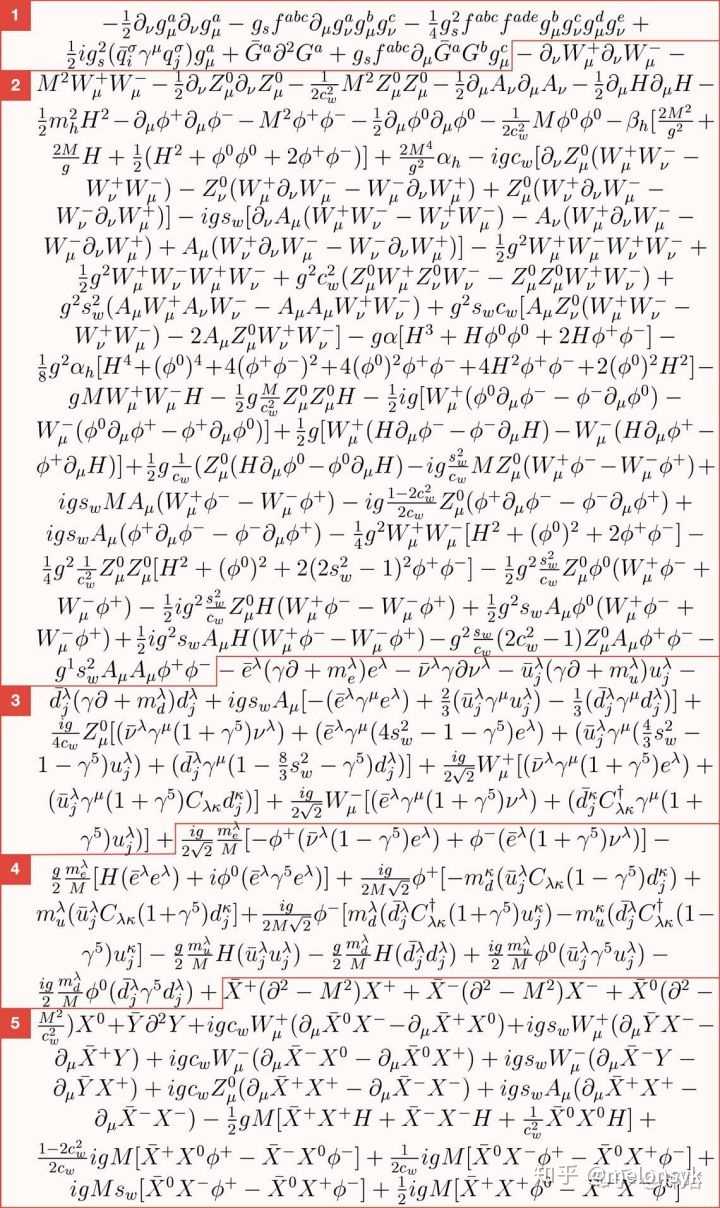 1 −½∂_νg^a_μ∂_νg^a_μ − g_s f^{abc}∂_μg^a_νg^b_μg^c_ν − ¼g²_s f^{abc}f^{ade}g^b_μg^c_νg^d_μg^e_ν +
½ig²_s(q̄^σ_iγ^μq^σ_j)g^a_μ + Ḡ^a∂²G^a + g_s f^{abc}∂_μḠ^aG^bg^c_μ − ∂_νW^+_μ∂_νW^-_μ −
2 M²W^+_μW^-_μ − ½∂_νZ^0_μ∂_νZ^0_μ − 1/(2c²_w) M²Z^0_μZ^0_μ − ½∂_μA_ν∂_μA_ν − ½∂_μH∂_μH −
½m²_hH² − ∂_μφ^+∂_μφ^- − M²φ^+φ^- − ½∂_μφ^0∂_μφ^0 − 1/(2c²_w) Mφ^0φ^0 − β_h[2M²/g² +
2M/g H + ½(H² + φ^0φ^0 + 2φ^+φ^-)] + 2M⁴/g² α_h − igc_w[∂_νZ^0_μ(W^+_μW^-_ν −
W^+_νW^-_μ) − Z^0_ν(W^+_μ∂_νW^-_μ − W^-_μ∂_νW^+_μ) + Z^0_μ(W^+_ν∂_νW^-_μ −
W^-_ν∂_νW^+_μ)] − igs_w[∂_νA_μ(W^+_μW^-_ν − W^+_νW^-_μ) − A_ν(W^+_μ∂_νW^-_μ −
W^-_μ∂_νW^+_μ) + A_μ(W^+_ν∂_νW^-_μ − W^-_ν∂_νW^+_μ)] − ½g²W^+_μW^-_μW^+_νW^-_ν +
½g²W^+_μW^-_νW^+_μW^-_ν + g²c²_w(Z^0_μW^+_μZ^0_νW^-_ν − Z^0_μZ^0_μW^+_νW^-_ν) +
g²s²_w(A_μW^+_μA_νW^-_ν − A_μA_μW^+_νW^-_ν) + g²s_wc_w[A_μZ^0_ν(W^+_μW^-_ν −
W^+_νW^-_μ) − 2A_μZ^0_μW^+_νW^-_ν] − gα[H³ + Hφ^0φ^0 + 2Hφ^+φ^-] −
⅛g²α_h[H⁴+(φ^0)⁴+4(φ^+φ^-)²+4(φ^0)²φ^+φ^-+4H²φ^+φ^-+2(φ^0)²H²]−
gMW^+_μW^-_μH − ½g M/c²_w Z^0_μZ^0_μH − ½ig[W^+_μ(φ^0∂_μφ^- − φ^-∂_μφ^0) −
W^-_μ(φ^0∂_μφ^+−φ^+∂_μφ^0)]+½g[W^+_μ(H∂_μφ^-−φ^-∂_μH)−W^-_μ(H∂_μφ^+−
φ^+∂_μH)]+½g 1/c_w (Z^0_μ(H∂_μφ^0−φ^0∂_μH)−ig s²_w/c_w MZ^0_μ(W^+_μφ^-−W^-_μφ^+)+
igs_wMA_μ(W^+_μφ^- − W^-_μφ^+) − ig (1−2c²_w)/(2c_w) Z^0_μ(φ^+∂_μφ^- − φ^-∂_μφ^+) +
igs_wA_μ(φ^+∂_μφ^- − φ^-∂_μφ^+) − ¼g²W^+_μW^-_μ[H² + (φ^0)² + 2φ^+φ^-] −
¼g² 1/c²_w Z^0_μZ^0_μ[H² + (φ^0)² + 2(2s²_w − 1)²φ^+φ^-] − ½g² s²_w/c_w Z^0_μφ^0(W^+_μφ^- +
W^-_μφ^+) − ½ig² s²_w/c_w Z^0_μH(W^+_μφ^- − W^-_μφ^+) + ½g²s_wA_μφ^0(W^+_μφ^- +
W^-_μφ^+) + ½ig²s_wA_μH(W^+_μφ^-−W^-_μφ^+)−g² s_w/c_w (2c²_w−1)Z^0_μA_μφ^+φ^-−
g¹s²_wA_μA_μφ^+φ^- − ē^λ(γ∂ + m^λ_e)e^λ − ν̄^λγ∂ν^λ − ū^λ_j(γ∂ + m^λ_u)u^λ_j −
3 d̄^λ_j(γ∂ + m^λ_d)d^λ_j + igs_wA_μ[−(ē^λγ^μe^λ) + ⅔(ū^λ_jγ^μu^λ_j) − ⅓(d̄^λ_jγ^μd^λ_j)] +
ig/(4c_w) Z^0_μ[(ν̄^λγ^μ(1 + γ⁵)ν^λ) + (ē^λγ^μ(4s²_w − 1 − γ⁵)e^λ) + (ū^λ_jγ^μ(4/3 s²_w −
1 − γ⁵)u^λ_j) + (d̄^λ_jγ^μ(1 − 8/3 s²_w − γ⁵)d^λ_j)] + ig/(2√2) W^+_μ[(ν̄^λγ^μ(1 + γ⁵)e^λ) +
(ū^λ_jγ^μ(1 + γ⁵)C_{λκ}d^κ_j)] + ig/(2√2) W^-_μ[(ē^λγ^μ(1 + γ⁵)ν^λ) + (d̄^κ_jC^†_{λκ}γ^μ(1 +
γ⁵)u^λ_j)] + ig/(2√2) m^λ_e/M [−φ^+(ν̄^λ(1 − γ⁵)e^λ) + φ^-(ē^λ(1 + γ⁵)ν^λ)] −
4 g/2 m^λ_e/M [H(ē^λe^λ) + iφ^0(ē^λγ⁵e^λ)] + ig/(2M√2) φ^+[−m^κ_d(ū^λ_jC_{λκ}(1 − γ⁵)d^κ_j) +
m^λ_u(ū^λ_jC_{λκ}(1+γ⁵)d^κ_j]+ ig/(2M√2) φ^-[m^λ_d(d̄^λ_jC^†_{λκ}(1+γ⁵)u^κ_j)−m^κ_u(d̄^λ_jC^†_{λκ}(1−
γ⁵)u^κ_j] − g/2 m^λ_u/M H(ū^λ_ju^λ_j) − g/2 m^λ_d/M H(d̄^λ_jd^λ_j) + ig/2 m^λ_u/M φ^0(ū^λ_jγ⁵u^λ_j) −
ig/2 m^λ_d/M φ^0(d̄^λ_jγ⁵d^λ_j) + X̄^+(∂² − M²)X^+ + X̄^-(∂² − M²)X^- + X̄^0(∂² −
5 M²/c²_w)X^0+Ȳ∂²Y+igc_wW^+_μ(∂_μX̄^0X^-−∂_μX̄^+X^0)+igs_wW^+_μ(∂_μȲX^-−
∂_μX̄^+Y) + igc_wW^-_μ(∂_μX̄^-X^0 − ∂_μX̄^0X^+) + igs_wW^-_μ(∂_μX̄^-Y −
∂_μȲX^+) + igc_wZ^0_μ(∂_μX̄^+X^+ − ∂_μX̄^-X^-) + igs_wA_μ(∂_μX̄^+X^+ −
∂_μX̄^-X^-) − ½gM[X̄^+X^+H + X̄^-X^-H + 1/c²_w X̄^0X^0H] +
(1−2c²_w)/(2c_w) igM[X̄^+X^0φ^+ − X̄^-X^0φ^-] + 1/(2c_w) igM[X̄^0X^-φ^+ − X̄^0X^+φ^-] +
igMs_w[X̄^0X^-φ^+ − X̄^0X^+φ^-] + ½igM[X̄^+X^+φ^0 − X̄^-X^-φ^0]
知乎 @melonsyk